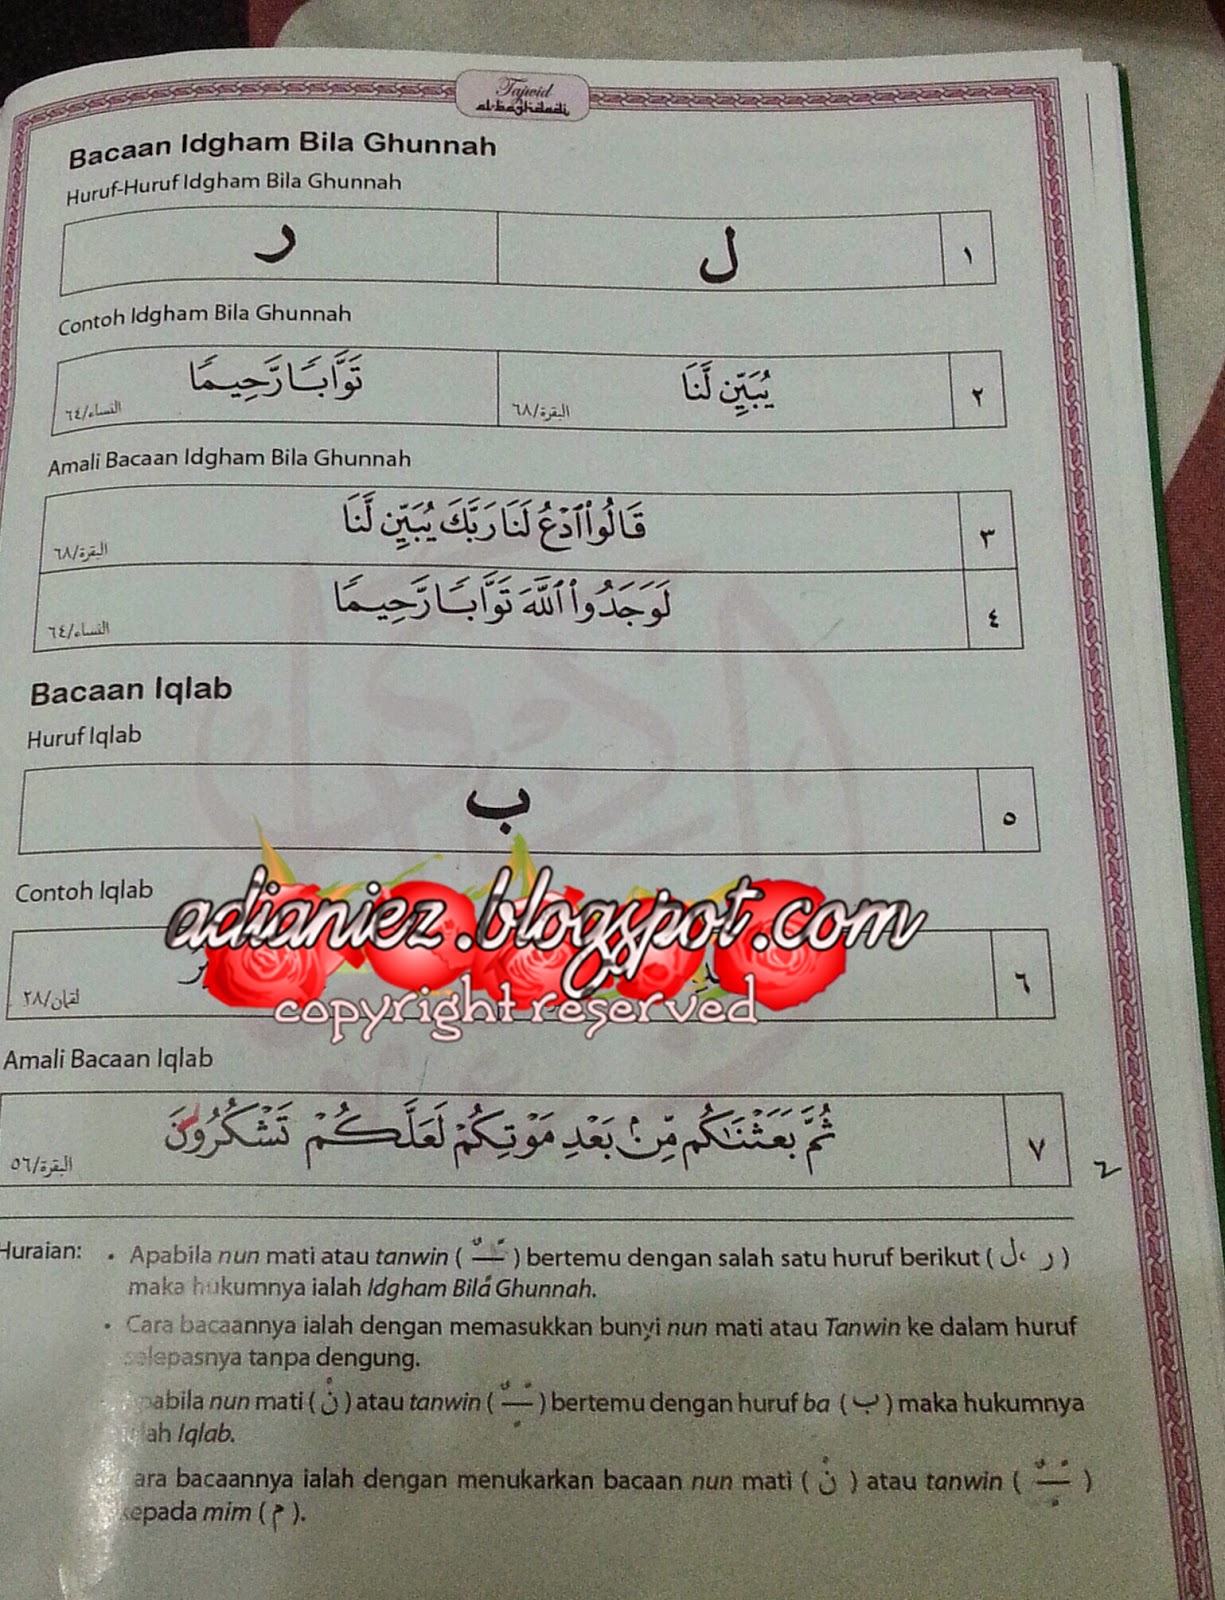 Tajwid
al-baghdadi
Bacaan Idgham Bila Ghunnah
Huruf-Huruf Idgham Bila Ghunnah
١ ل ر
Contoh Idgham Bila Ghunnah
٢ يُبَيِّن لَّنَا البقرة/٦٨ تَوَّابًا رَّحِيمًا النساء/٦٤
Amali Bacaan Idgham Bila Ghunnah
٣ قَالُوا۟ ٱدْعُ لَنَا رَبَّكَ يُبَيِّن لَّنَا البقرة/٦٨
٤ لَوَجَدُوا۟ ٱللَّهَ تَوَّابًا رَّحِيمًا النساء/٦٤
Bacaan Iqlab
Huruf Iqlab
٥ ب
Contoh Iqlab
adianiez.blogspot.com
٦ لقمان/٢٨
copyright reserved
Amali Bacaan Iqlab
٧ ثُمَّ بَعَثْنَٰكُم مِّنۢ بَعْدِ مَوْتِكُمْ لَعَلَّكُمْ تَشْكُرُونَ البقرة/٥٦
Huraian: • Apabila nun mati atau tanwin ( ـًـٌـ ) bertemu dengan salah satu huruf berikut ( ل، ر )
maka hukumnya ialah Idgham Bila Ghunnah.
• Cara bacaannya ialah dengan memasukkan bunyi nun mati atau Tanwin ke dalam huruf
selepasnya tanpa dengung.
Apabila nun mati ( نْ ) atau tanwin ( ـًـٍـٌـ ) bertemu dengan huruf ba ( ب ) maka hukumnya
ialah Iqlab.
Cara bacaannya ialah dengan menukarkan bacaan nun mati ( نْ ) atau tanwin ( ـًـٍـٌـ )
kepada mim ( م ).